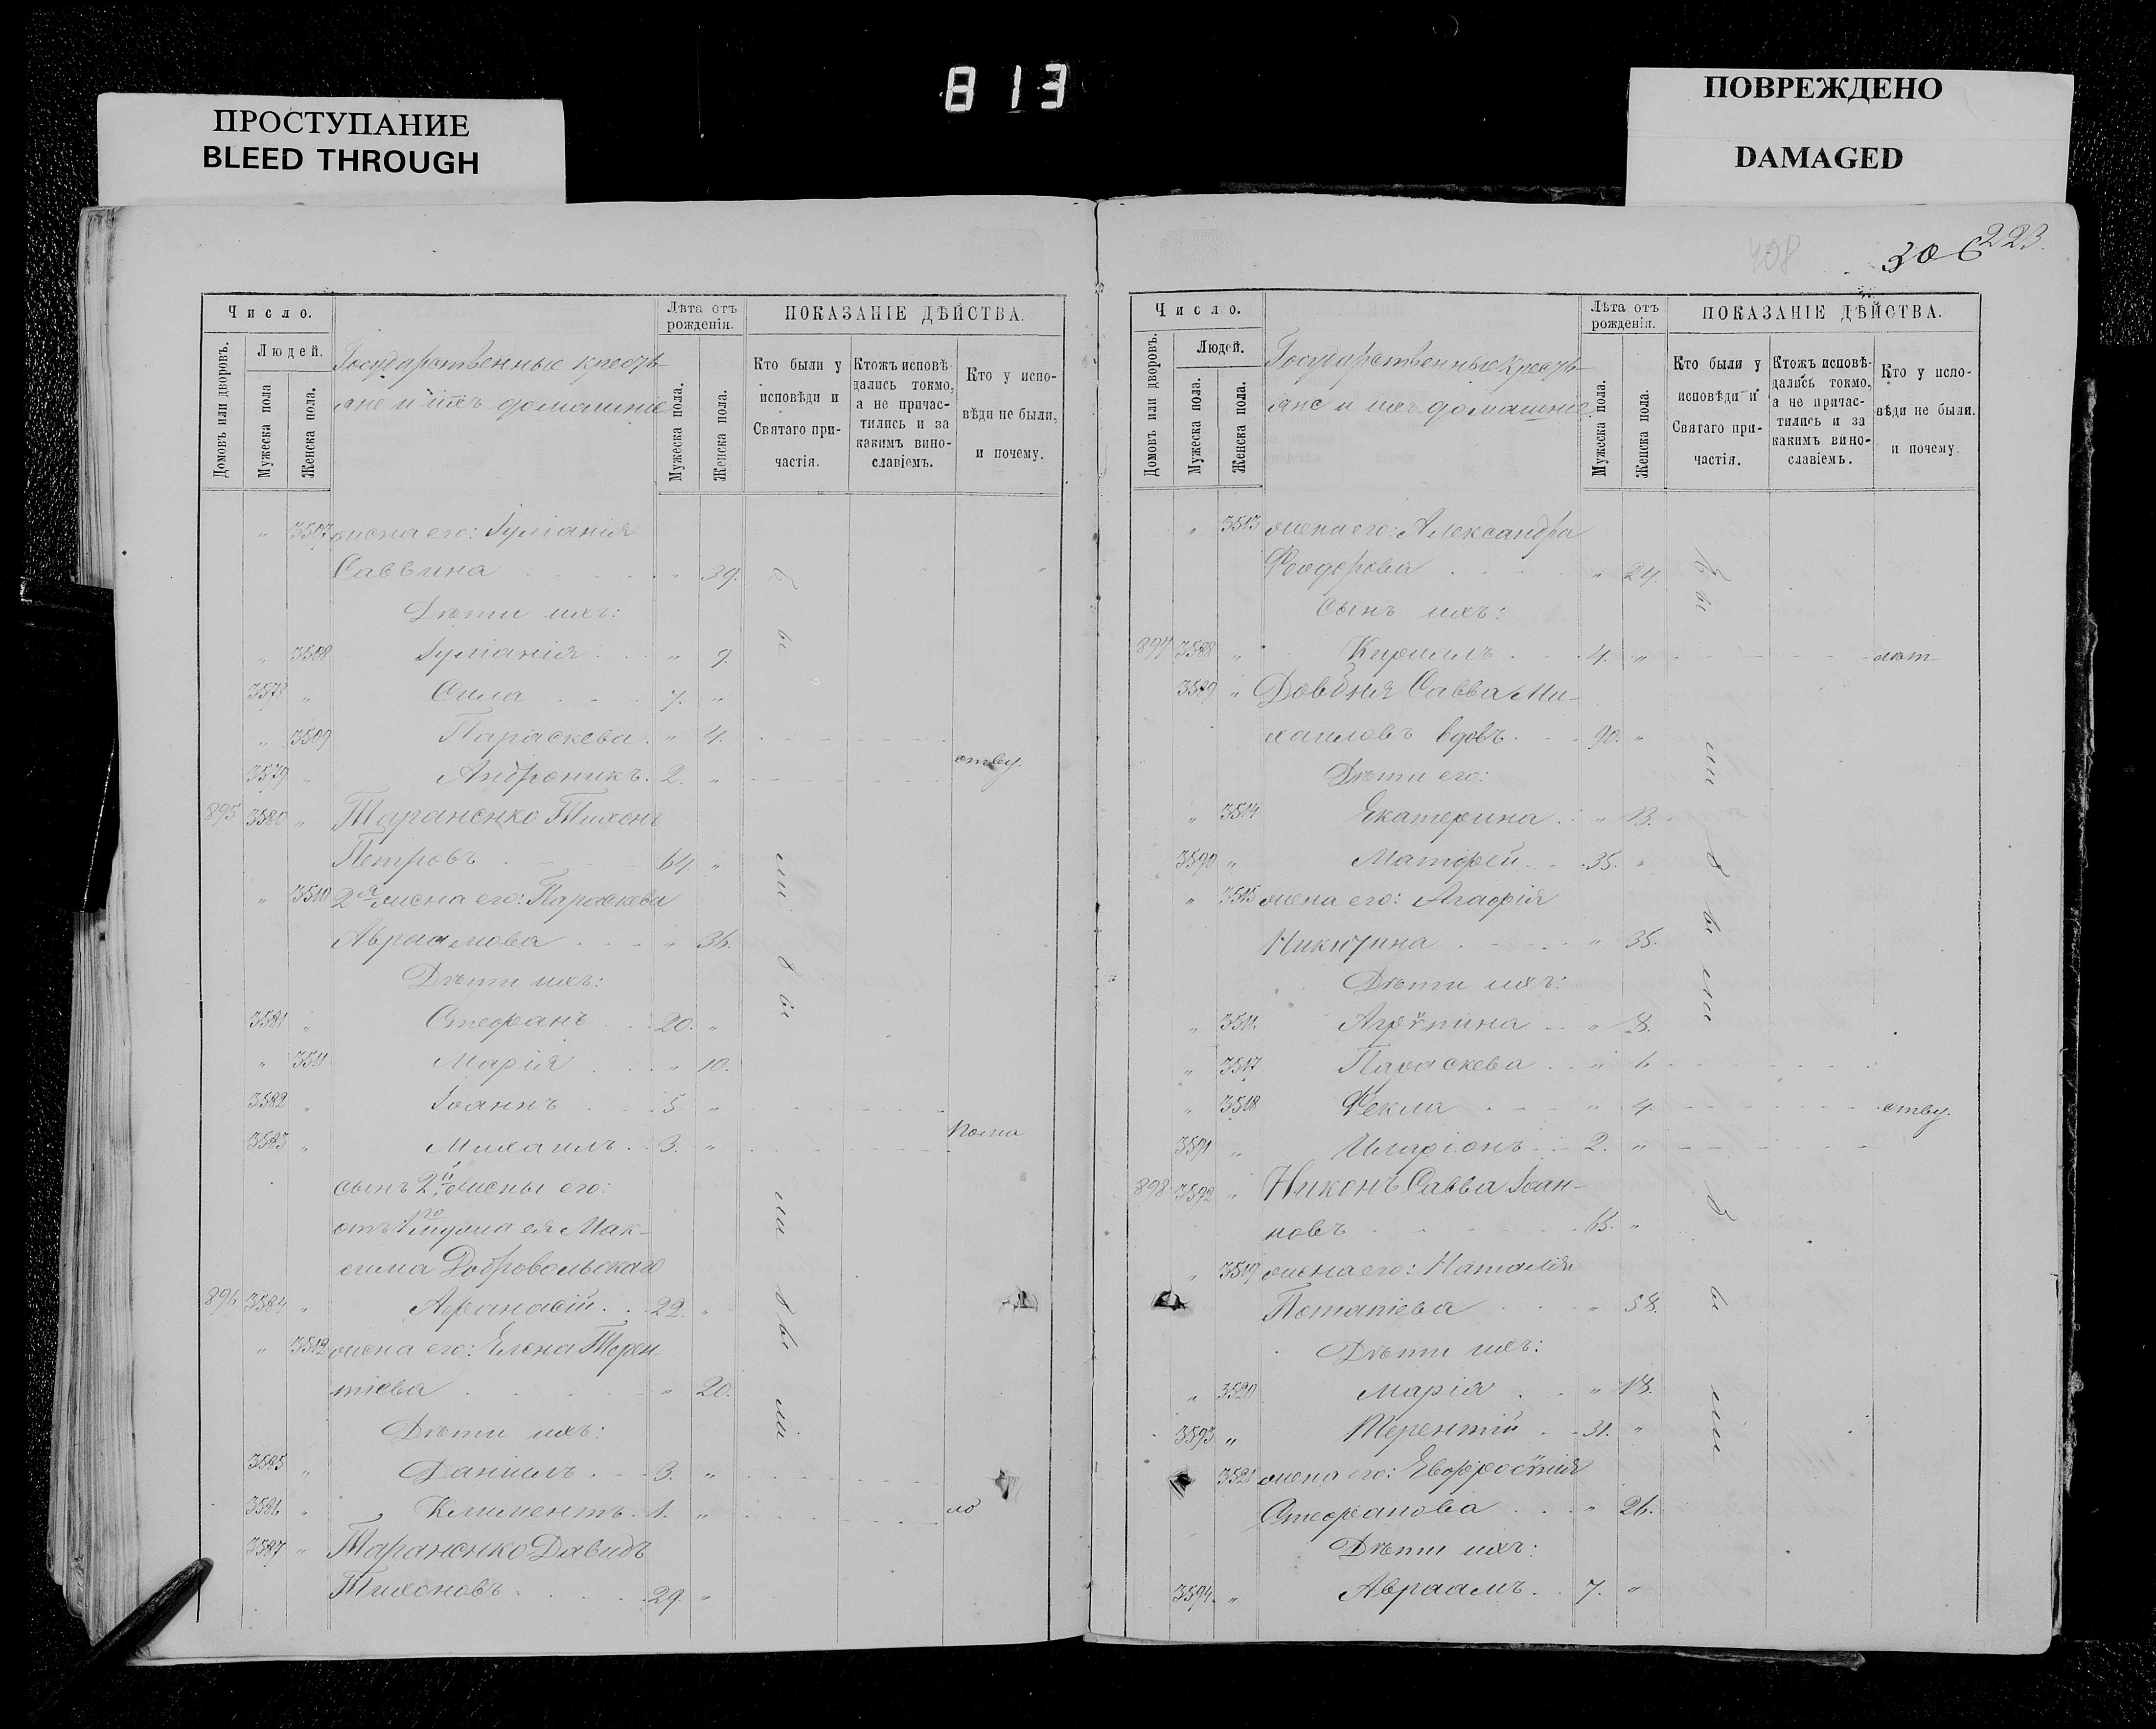 813
ПРОСТУПАНИЕ
BLEED THROUGH
ПОВРЕЖДЕНО
DAMAGED
Число.
Людей.
Домовъ или дворовъ.
Мужеска пола
Женска пола.
Государственные кресть-
яне и ихъ домашніе
Лѣта отъ рожденія.
Мужеска пола.
Женска пола.
ПОКАЗАНІЕ ДѢЙСТВА.
Кто были у исповѣди и Святаго при-частія.
Ктожъ исповѣ-дались токмо, а не причас-тились и за какимъ вино-славіемъ.
Кто у испо-вѣди не были, и почему.
" 3507 жена его: Іуліанія
Саввина " 39.
Дѣти ихъ:
" 3508 Іуліанія " 9.
3578 " Сила 7. "
" 3509 Параскева " 4.
3579 " Андроникъ. 2. "
отву.
895 3580 " Тараненко Тихонъ
Петровъ 64. "
" 3510 2я жена его: Параскева
Авраамова " 36.
Дѣти ихъ:
3581 " Стефанъ 20. "
" 3511 Марія " 10.
3582 " Іоаннъ 5 "
3583 " Михаилъ 3. "
сынъ 2й жены его:
отъ 1го мужа ея Мак-
сима Добровольскаго
896 3584 " Афанасій 22. "
" 3512 жена его: Елена Терен
тіева " 20.
Дѣти ихъ:
3585 " Даніилъ 3. "
3586 " Климентъ 1. "
3587 " Тараненко Давидъ
Тихоновъ 29. "
были
были
были
408
306
223.
Число.
Людей.
Домовъ или дворовъ.
Мужеска пола.
Женска пола.
Государственные кресть-
яне и ихъ домашніе
Лѣта отъ рожденія.
Мужеска пола.
Женска пола.
ПОКАЗАНІЕ ДѢЙСТВА.
Кто были у исповѣди и Святаго при-частія.
Ктожъ исповѣ-дались токмо, а не причас-тились и за какимъ вино-славіемъ.
Кто у испо-вѣди не были. и почему.
" 3513 жена его: Александра
Феодорова " 24.
Сынъ ихъ:
897 3588 " Кириллъ 4. "
3589 " Довбня Савва Ми-
хаиловъ вдовъ 90. "
Дѣти его:
" 3514 Екатерина " 13.
3590 " Матфей 35. "
" 3515 жена его: Агафія
Никитина " 35.
Дѣти ихъ:
" 3516 Агрѵпина " 8.
" 3517 Параскева " 6
" 3518 Фекла " 4.
отву.
3591 " Иларіонъ 2. "
898 3592 " Никонъ Савва Іоан-
новъ 65. "
" 3519 жена его: Наталія
Потапіева " 58.
Дѣти ихъ:
" 3520 Марія " 18.
3593 " Терентій 31. "
3521 жена его: Евфросинія
Стефанова " 26.
Дѣти ихъ:
3594. " Авраамъ 7. "
были
были
были